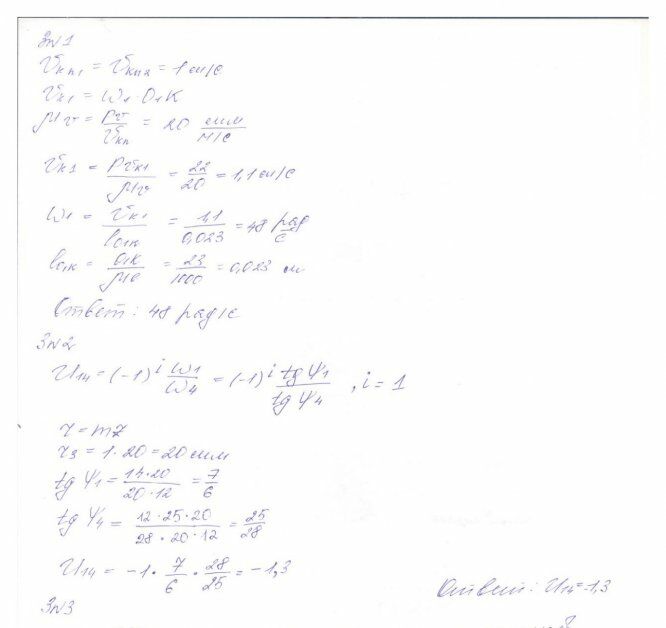 З№1
Vкп1 = Vкп2 = 1 м/с
Vк1 = ω1 · O1K
μv = Pv / Vкп = 20 мм / м/с
Vк1 = Pvк1 / μv = 22 / 20 = 1,1 м/с
ω1 = Vк1 / lO1K = 1,1 / 0,023 = 48 рад / с
lO1K = O1K / μe = 23 / 1000 = 0,023 м
Ответ: 48 рад/с
З№2
U14 = (-1)^i ω1 / ω4 = (-1)^i tg Ψ1 / tg Ψ4 , i = 1
r = mz
r3 = 1 · 20 = 20 мм
tg Ψ1 = 14·20 / 20·12 = 7 / 6
tg Ψ4 = 12·25·20 / 28·20·12 = 25 / 28
U14 = -1 · 7 / 6 · 28 / 25 = -1,3
Ответ: U14 = -1,3
З№3